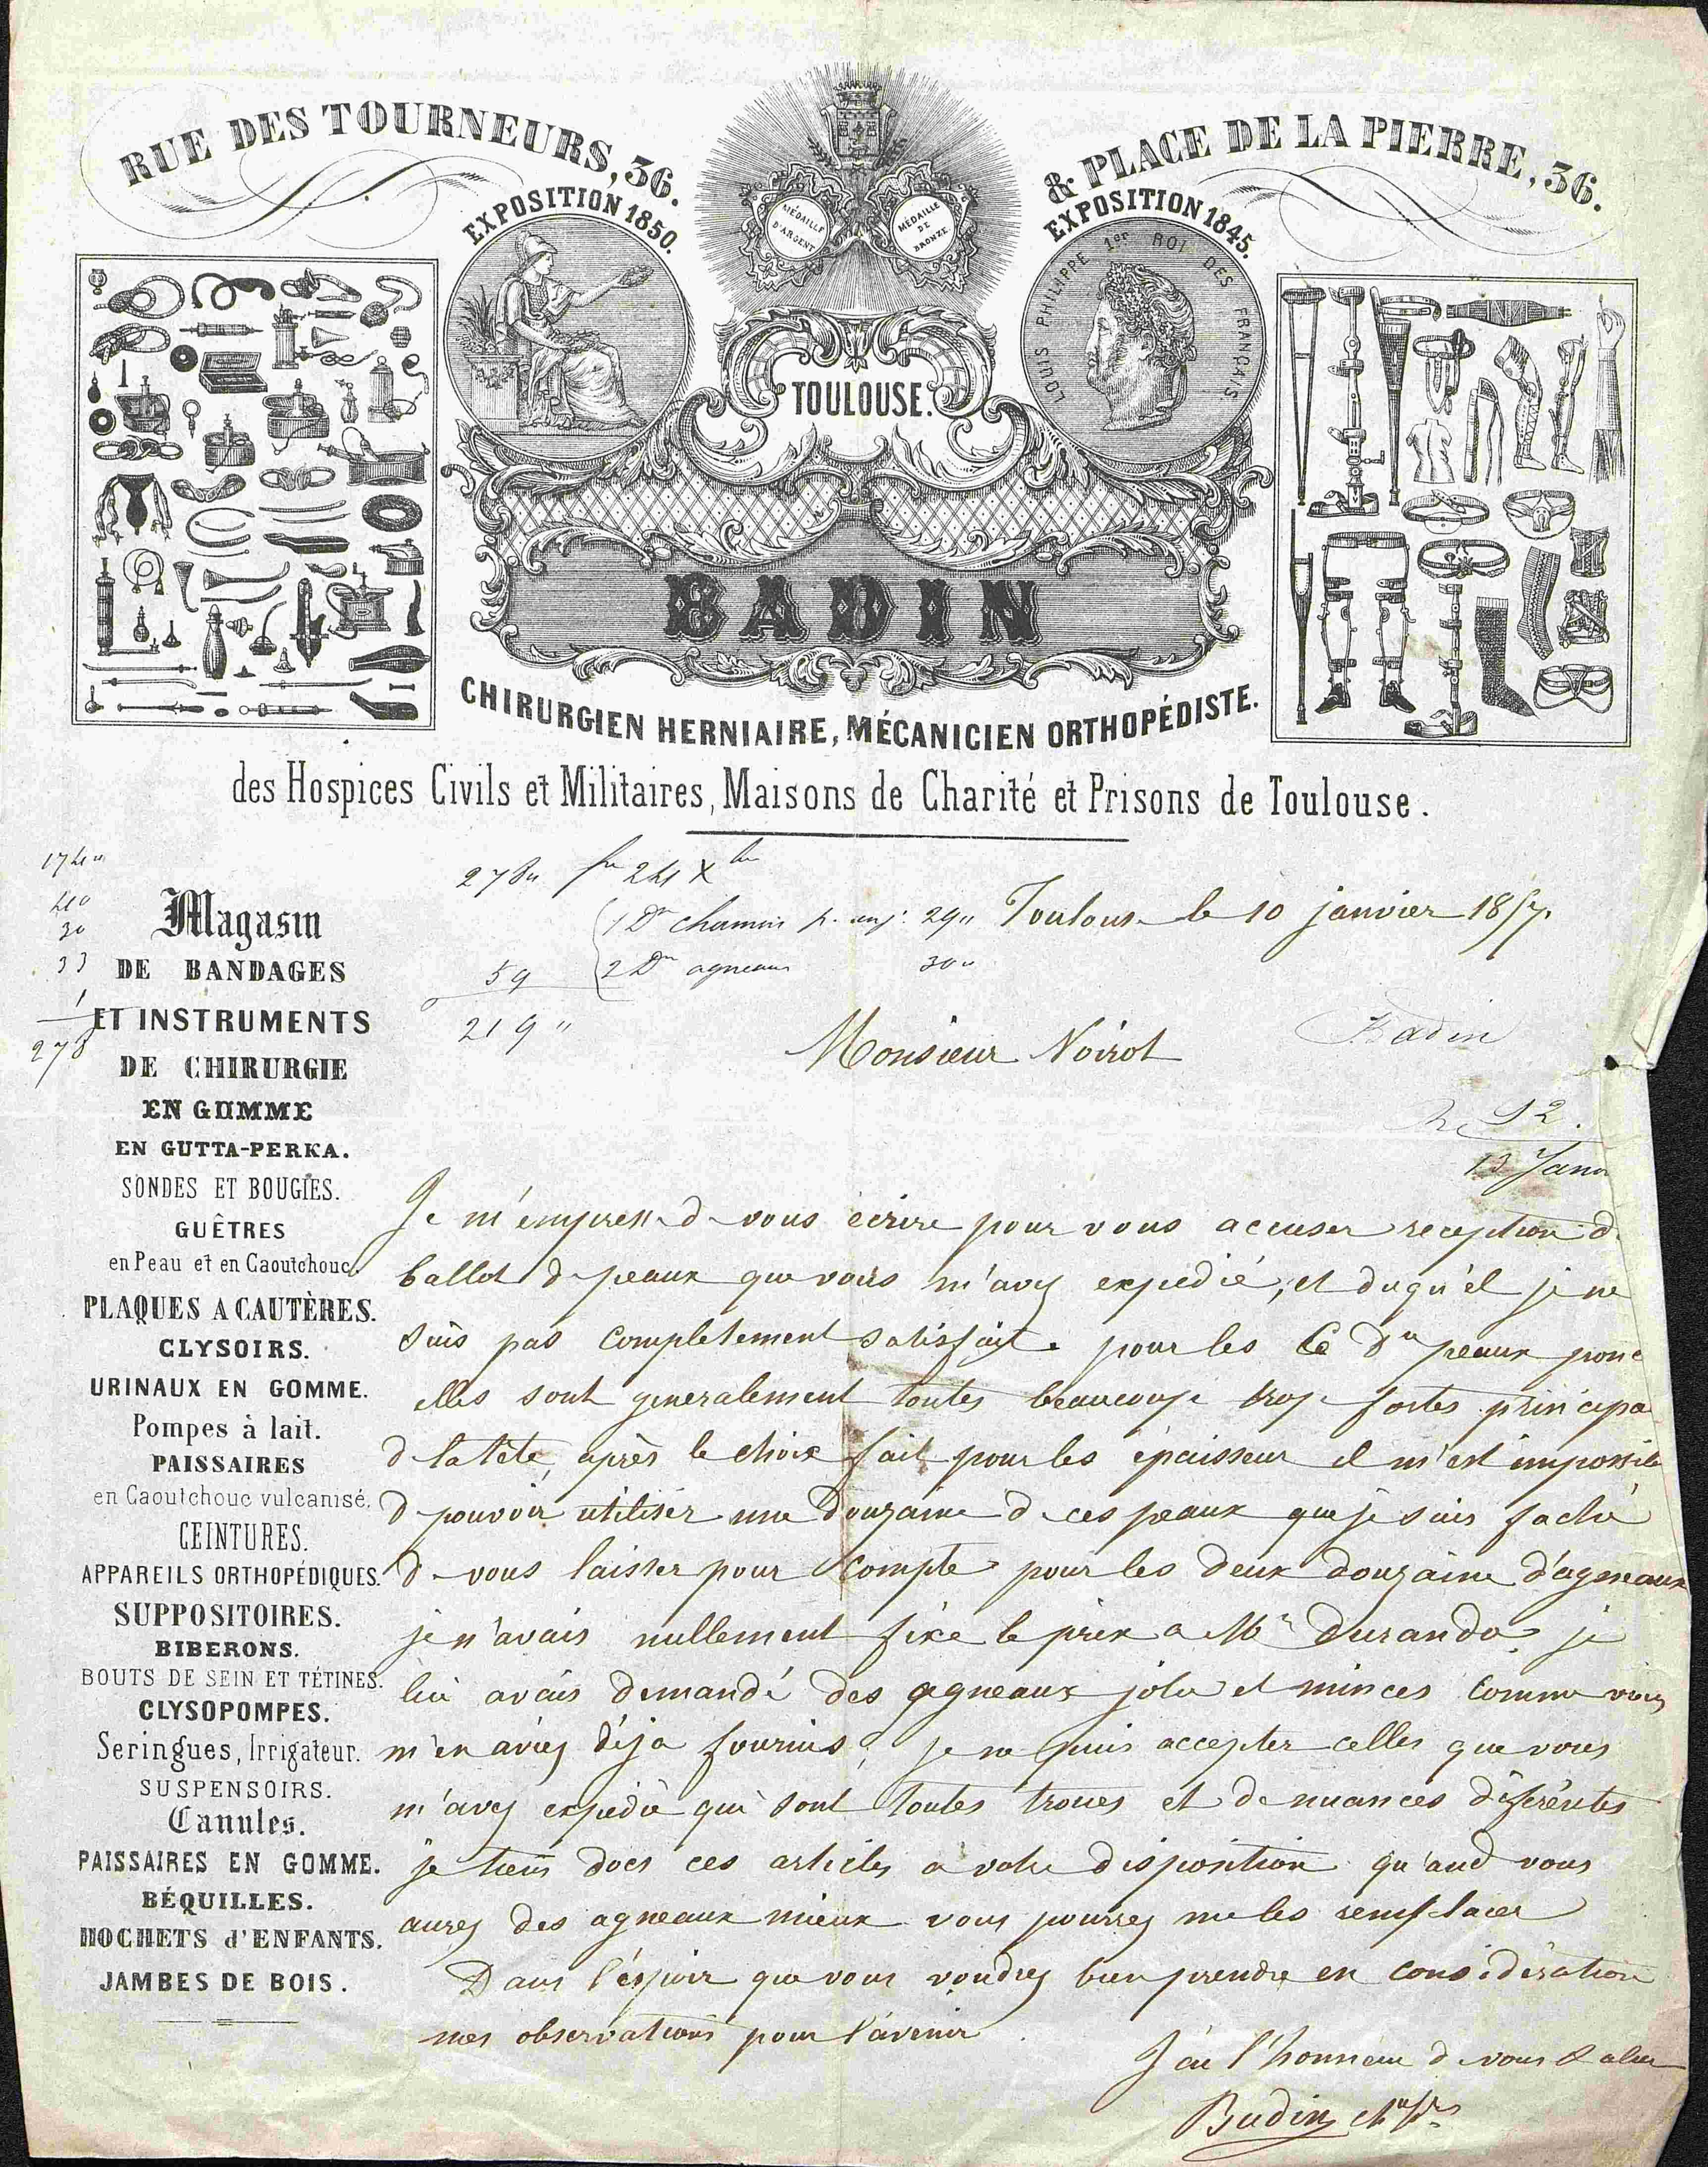 RUE DES TOURNEURS, 36.
& PLACE DE LA PIERRE, 36.
EXPOSITION 1850.
MÉDAILLE D'ARGENT
MÉDAILLE DE BRONZE
EXPOSITION 1845.
LOUIS PHILIPPE 1er ROI DES FRANÇAIS
TOULOUSE.
BADIN
CHIRURGIEN HERNIAIRE, MÉCANICIEN ORTHOPÉDISTE.
des Hospices Civils et Militaires, Maisons de Charité et Prisons de Toulouse.
40
30
33
1
278
59
1 Dne chamois 29"
2 Dnes agneaux 30"
219 "
Magasin
DE BANDAGES
ET INSTRUMENTS
DE CHIRURGIE
EN GOMME
EN GUTTA-PERKA.
SONDES ET BOUGIES.
GUÊTRES
en Peau et en Caoutchouc.
PLAQUES A CAUTÈRES.
CLYSOIRS.
URINAUX EN GOMME.
Pompes à lait.
PAISSAIRES
en Caoutchouc vulcanisé.
CEINTURES.
APPAREILS ORTHOPÉDIQUES.
SUPPOSITOIRES.
BIBERONS.
BOUTS DE SEIN ET TÉTINES.
CLYSOPOMPES.
Seringues, Irrigateur.
SUSPENSOIRS.
Canules.
PAISSAIRES EN GOMME.
BÉQUILLES.
HOCHETS d'ENFANTS.
JAMBES DE BOIS.
Toulouse le 10 janvier 1857.
Monsieur Noirot
Badin
12.
13 Janv
Je m'empresse de vous écrire pour vous accuser reception d
ballot de peaux que vous m'avez expedié, et duqu'el je ne
suis pas completement satisfait. pour les 6 Dnes peaux
elles sont generalement toutes beaucoup trop fortes principa
de la tête, après le choix fait pour les épaisseur il m'est impossib
de pouvoir utiliser une douzaine de ces peaux que je suis faché
de vous laisser pour compte pour les deux douzaine d'agneaux
je n'avais nullement fixé le prix a Mr Durando, je
lui avais demandé des agneaux jolis et minces comme vous
m'en aviez déja fournis, je ne puis accepter celles que vous
m'avez expedié qui sont toutes troues et de nuances diferéntes
je tiens docs ces articles a votre disposition qu'and vous
aurez des agneaux mieux vous pourrez me les remplacer
Dans l'éspoir que vous voudrez bien prendre en considération
mes observations pour l'avenir
J'ai l'honneur de vous saluer
Badin